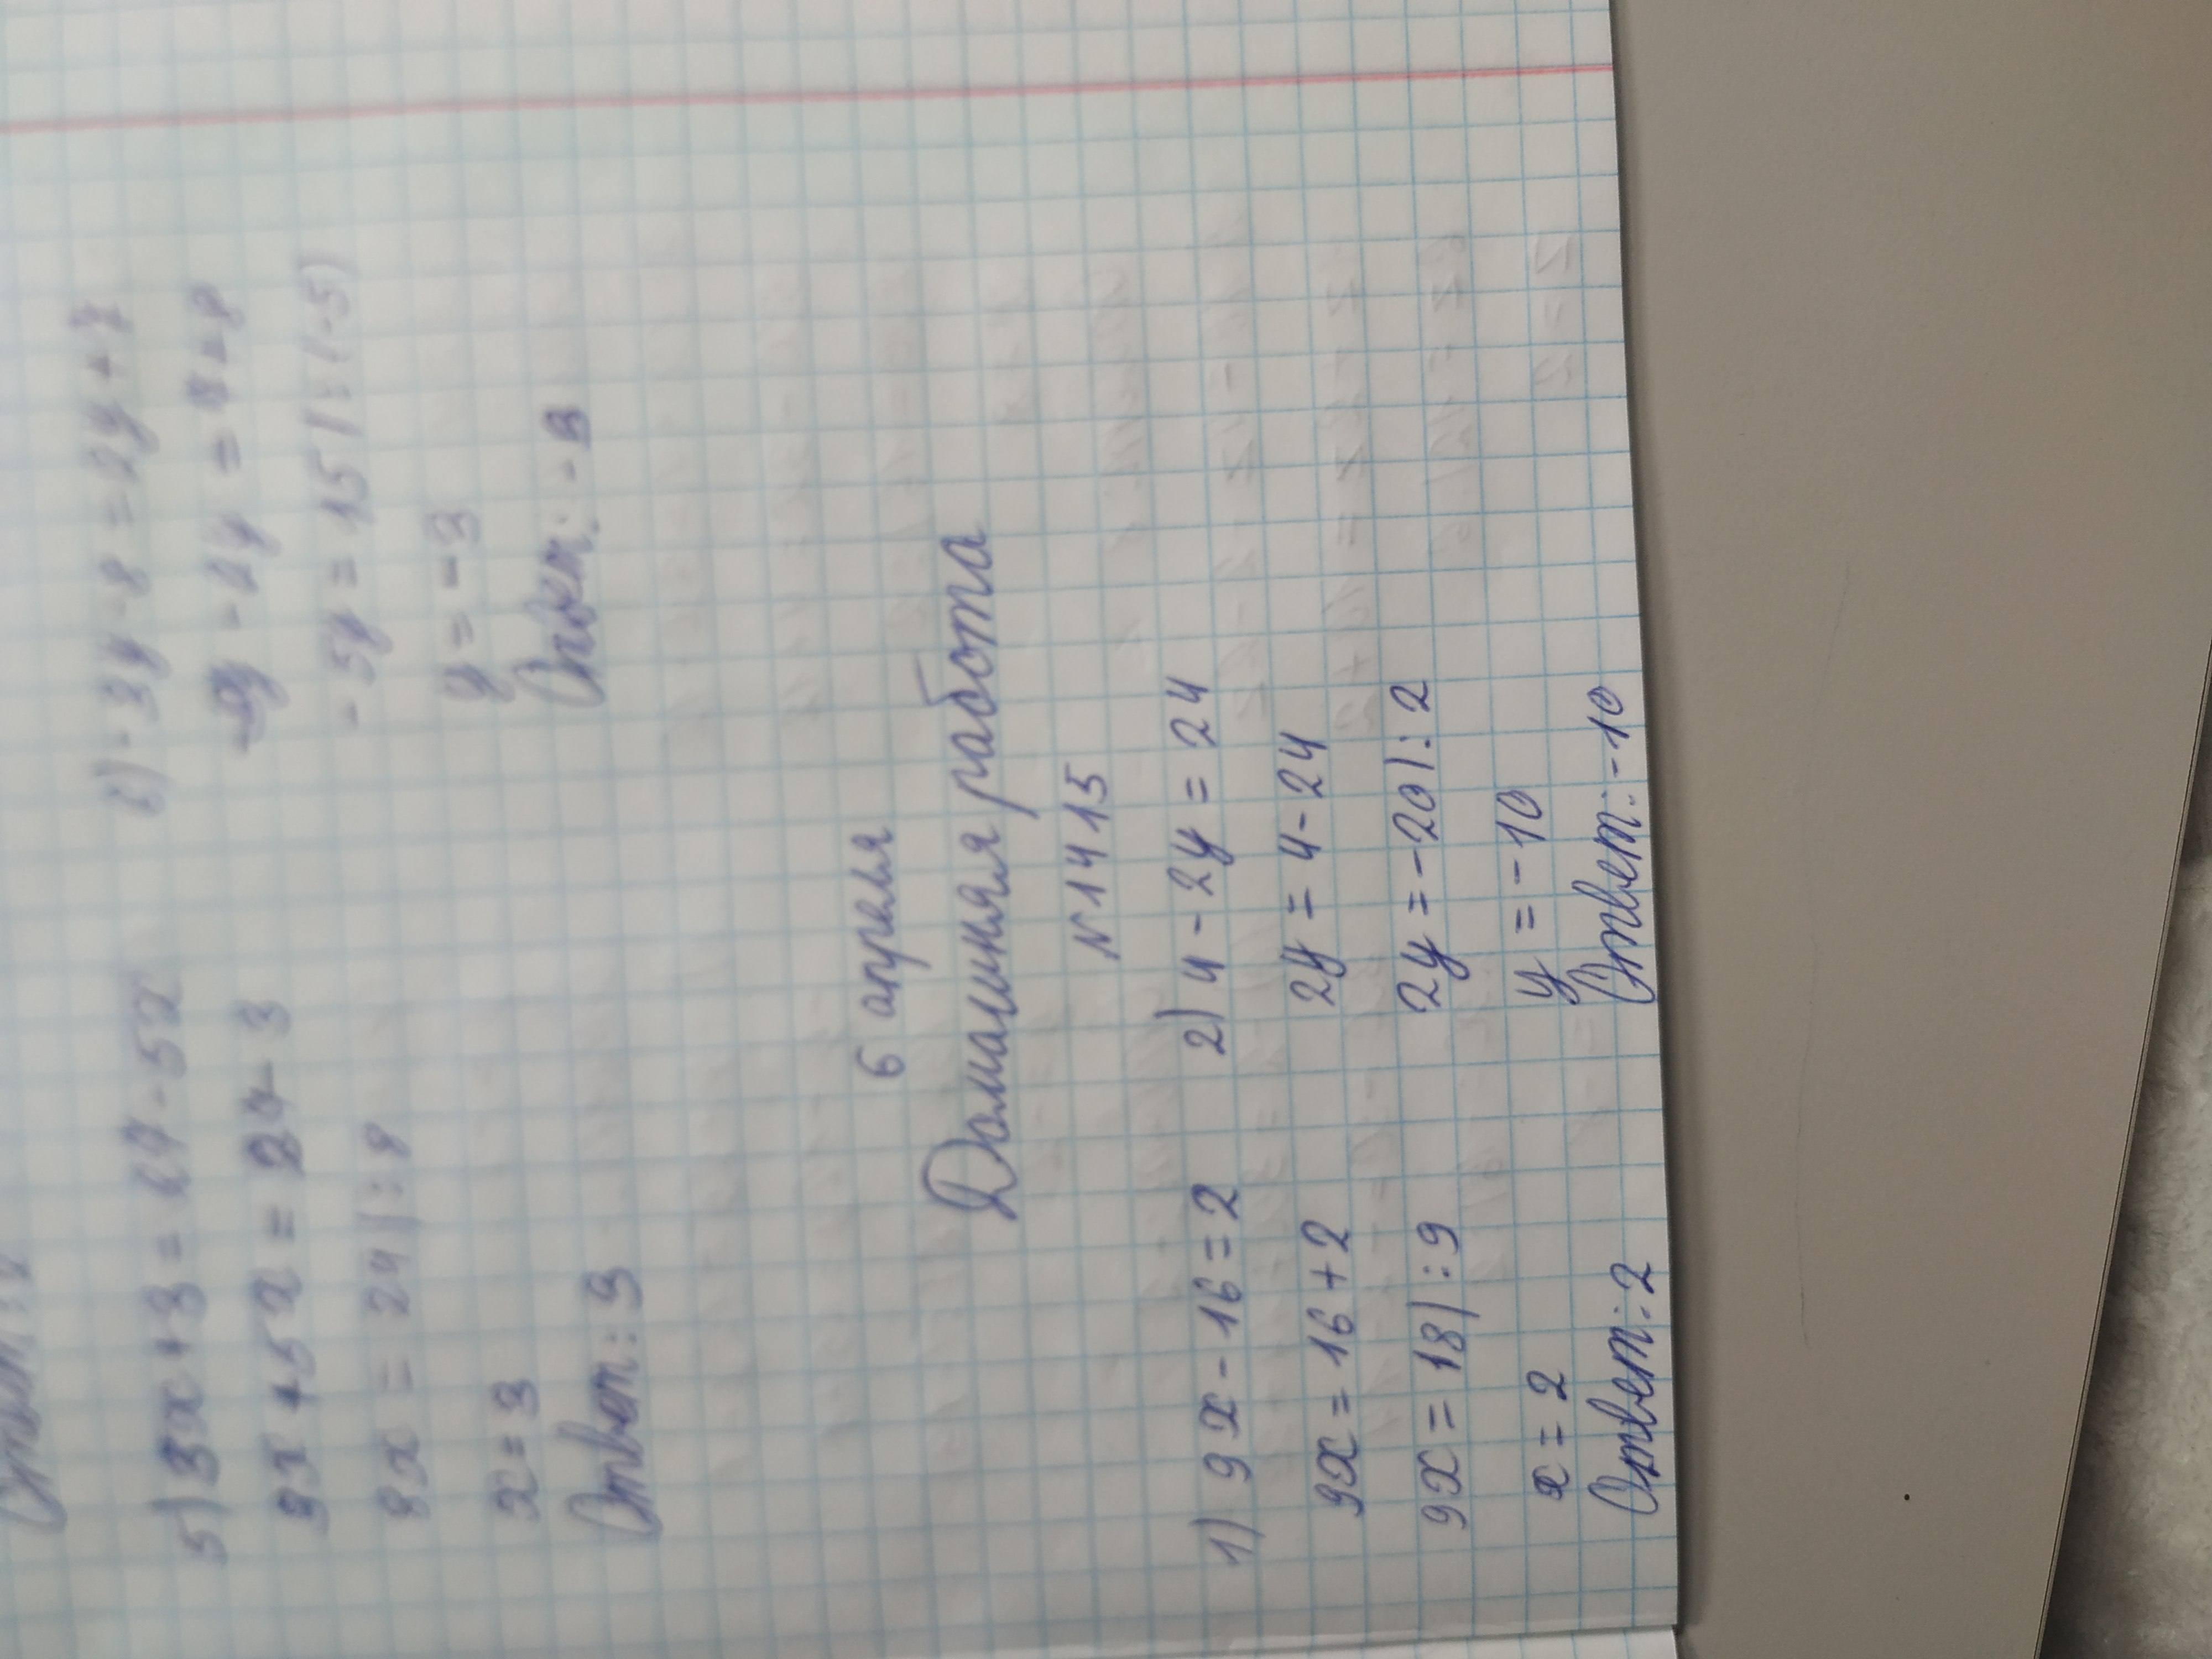 5) 3x+3=27-5x
3x+5x=27-3
8x=24|:8
x=3
Ответ: 3
6) -3y-8=2y+7
-3y-2y=7+8
-5y=15|:(-5)
y=-3
Ответ: -3
6 апреля
Домашняя работа
№1415
1) 9x-16=2
9x=16+2
9x=18|:9
x=2
Ответ: 2
2) 4-2y=24
2y=4-24
2y=-20|:2
y=-10
Ответ: -10